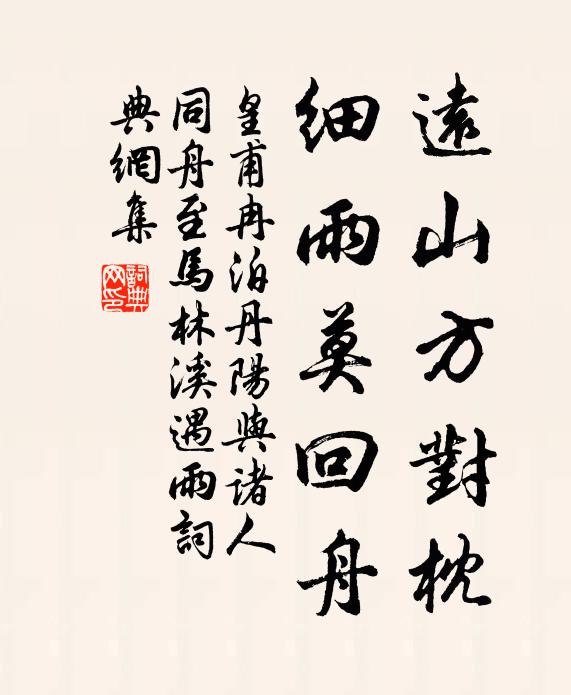 遠山方對枕
細雨莫回舟
皇甫冉泊丹陽與諸人
同舟至馬林溪遇雨詞
典網集
詞典
网印